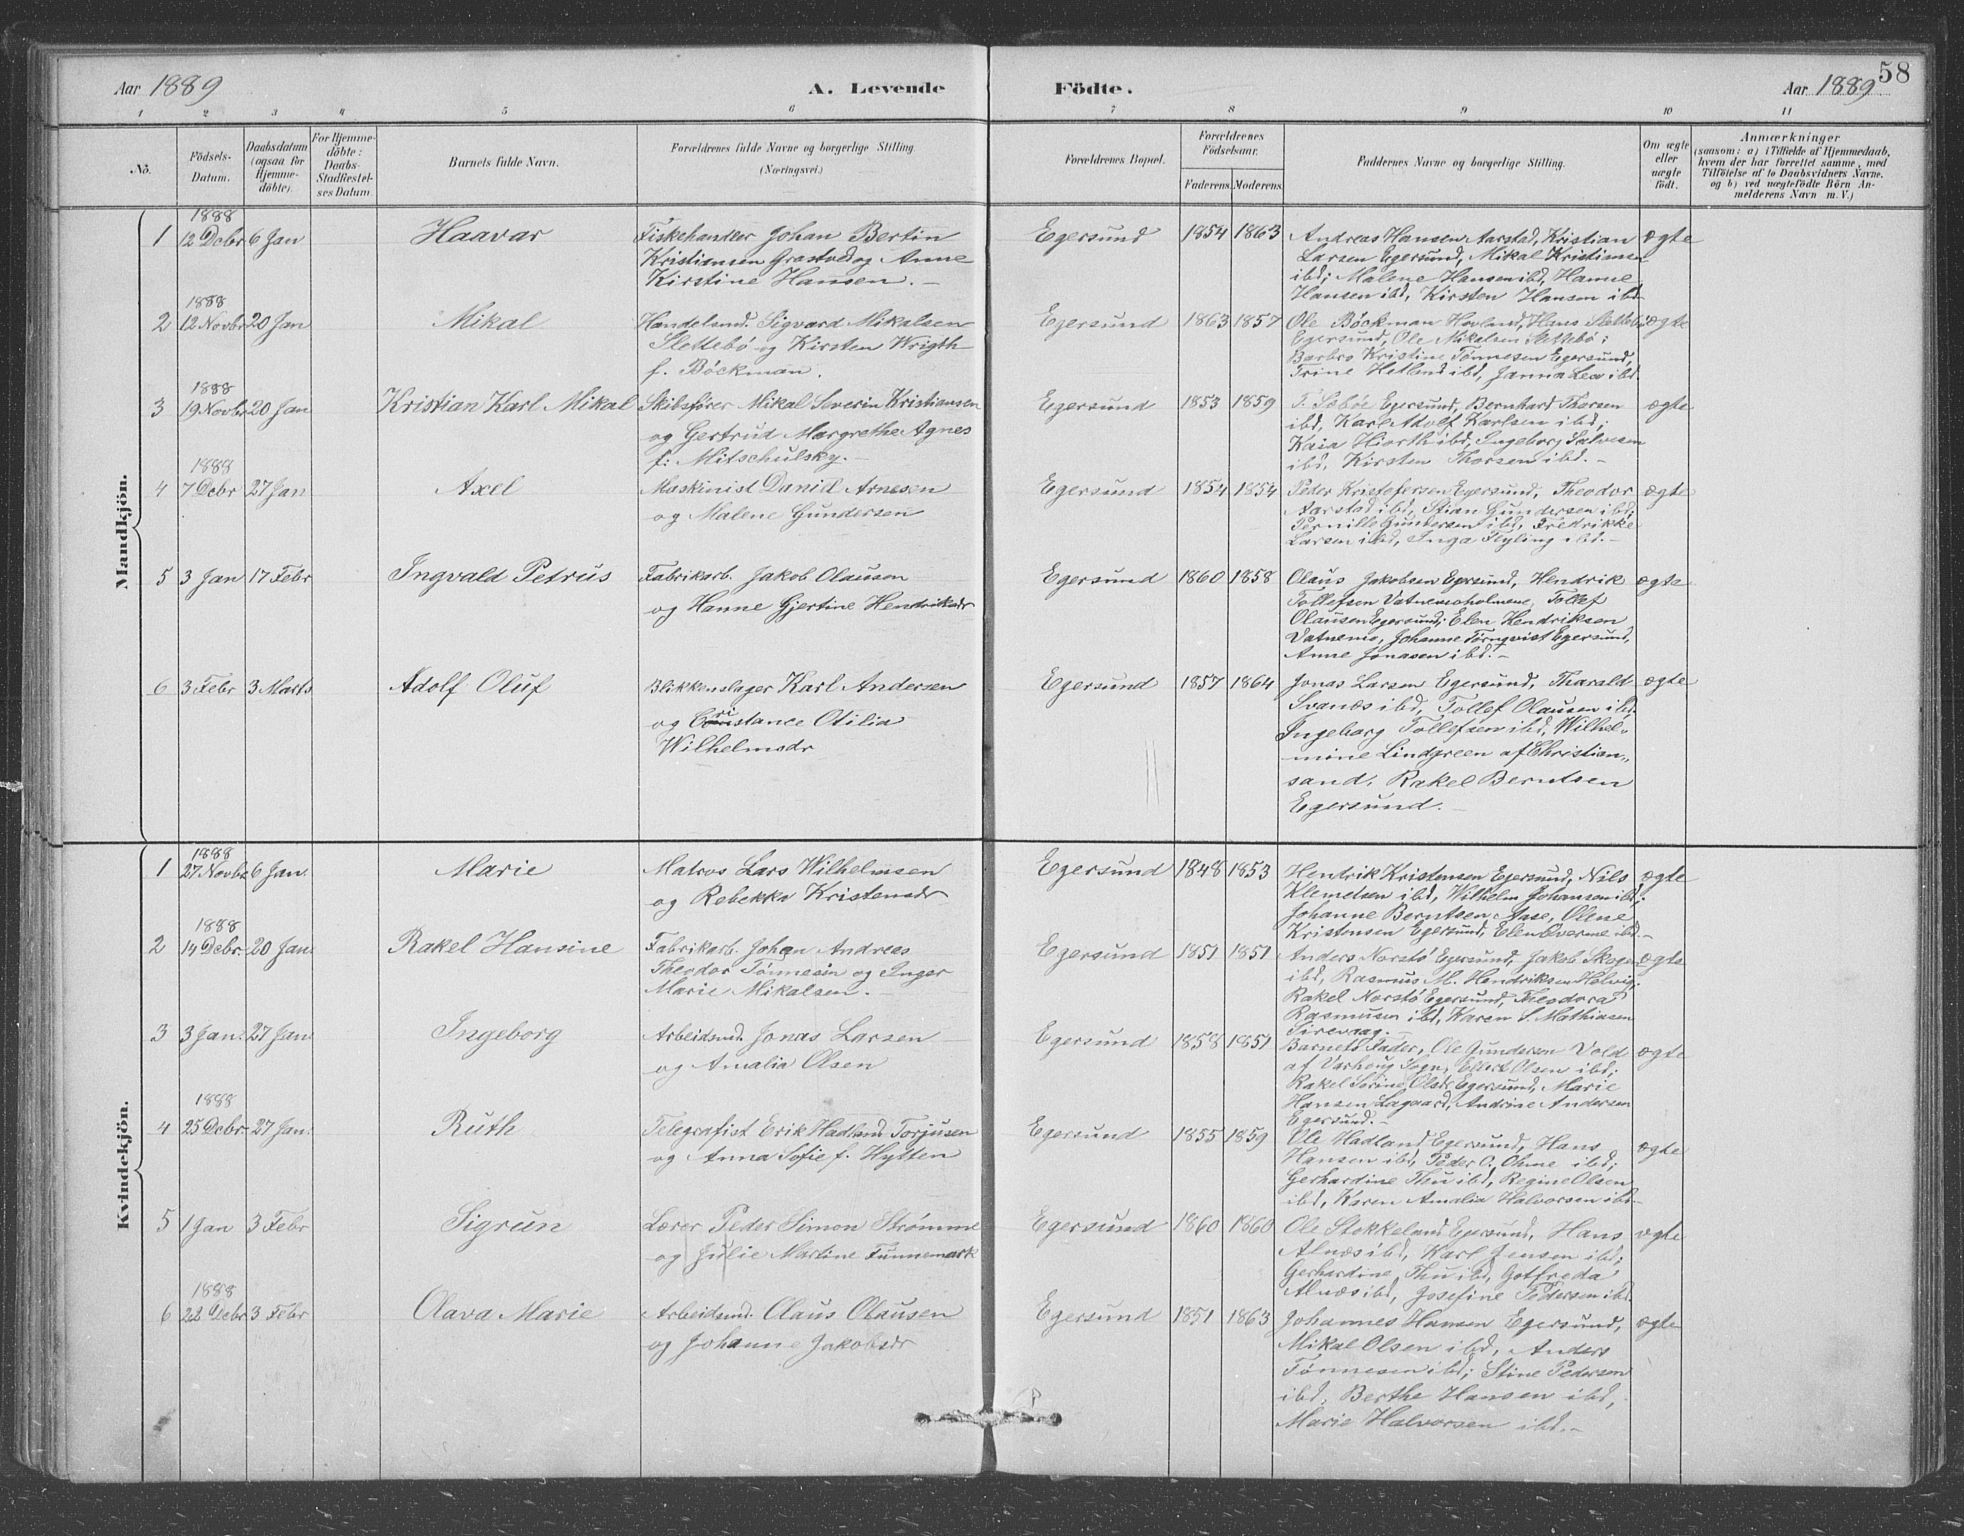 58
Aar 1889
A. Levende Födte.
Aar 1889
1 2 3 4 5 6 7 8 9 10 11
No.
Födsels-Datum.
Daabsdatum (ogsaa for Hjemme-döbte).
For Hjemme-döbte: Daabs-Stadfæstel-ses Datum.
Barnets fulde Navn.
Forældrenes fulde Navne og borgerlige Stilling.
(Næringsvei.)
Forældrenes Bopæl.
Forældrenes Födselsaar.
Faderens. Moderens.
Faddernes Navne og borgerlige Stilling.
Om ægte eller uægte födt.
Anmærkninger
(saasom: a) i Tilfælde af Hjemmedaab,
hvem der har forrettet samme, med
Tilföielse af to Daabsvidners Navne.
og b) ved uægtefödte Börn An-
melderens Navn m. V.)
Mandkjön.
1888
1 12 Debr 6 Jan Haavar Fiskehandler Johan Bertin Egersund 1854 1863 Andreas Hansen Aarstad, Kristian ægte
Kristiansen Grastved og Anne Larsen Egersund, Mikal Kristiansen
Kirstine Hansen. - ibd; Malene Hansen ibd, Hanne
Hansen ibd, Kirsten Hansen ibd
1888
2 12 Novbr 20 Jan Mikal Handelsmd. Sigvard Mikalsen Egersund 1863 1857 Ole Böckman Hovland, Hans Slettebö ægte
Slettebö og Kirsten Wrigth Egersund, Ole Mikalsen Slettebö;
f. Böckman. Barbro Kristine Tönnesen Egersund,
Trine Hetland ibd, Janna Lea ibd.
1888
3 19 Novbr 20 Jan Kristian Karl Mikal Skibsförer Mikal Severin Kristiansen Egersund 1853 1859 T. Seböe Egersund, Bernhard Thorsen ægte
og Gertrud Margrethe Agnes ibd, Karl Adolf Karlsen ibd;
f. Mitschulsky. - Kaia Hiorth ibd, Ingeborg Salvesen
ibd, Kirsten Thorsen ibd. -
1888
4 7 Debr 27 Jan Axel Maskinist Daniel Arnesen Egersund 1854 1854 Peder Kristofersen Egersund, Theodor ægte
og Malene Gundersen Aarstad ibd, Stian Gundersen ibd;
Pernille Gundersen ibd, Fredrikke
Larsen ibd, Inga Flyling ibd. -
5 3 Jan 17 Febr Ingvald Petrus Fabrikarb. Jakob Olauson Egersund 1860 1858 Olaus Jakobsen Egersund, Hendrik ægte
og Hanne Gjertine Hendriksdr Tollefsen Vatnemoholmene, Tollef
Olausen Egersund; Elen Hendriksen
Vatnemo, Johanne Törnqvist Egersund,
Anne Jonasen ibd. -
6 3 Febr 3 Marts Adolf Oluf Blikkenslager Karl Andersen Egersund 1857 1864 Jonas Larsen Egersund, Tharald ægte
og Constance Otilia Svanæs ibd, Tollef Olausen ibd.
Wilhelmsdr Ingeborg Tollefsen ibd, Wilhel„
mine Lindgreen af Christian„
sand, Rakel Berntsen
Egersund. -
Kvindekjön.
1888
1 27 Novbr 6 Jan. Marie Matros Lars Wilhelmsen Egersund 1848 1853 Hendrik Kristensen Egersund, Nils ægte
og Rebekka Kristensdr Klemetsen ibd, Wilhelm Johansen ibd;
Johanne Berntsen Aase, Olene
Kristensen Egersund, Elen Overme ibd.-
1888
2 14 Debr. 20 Jan. Rakel Hansine Fabrikarb. Johan Andreas Egersund 1851 1851 Anders Norstö Egersund, Jakob Skogen ægte
Theodor Tönnesen og Inger ibd, Rasmus M. Hendriksen Helvig;
Marie Mikalsen. - Rakel Norstö Egersund, Theodora
Rasmusen ibd, Karen S. Mathiasen
Sirevaag. -
3 3 Jan. 27 Jan. Ingeborg Arbeidsmd. Jonas Larsen Egersund 1858 1851 Barnets Fader, Ole Gundersen Vold ægte
og Amalia Olsen af Varhoug Sogn, Ellert Olsen ibd;
Rakel Serine Olsdr Egersund, Marie
Hansen Lagaard, Andrine Andersen
Egersund. -
1888
4 25 Debr. 27 Jan. Ruth Telegrafist Erik Hadland Torjusen Egersund 1855 1859 Ole Hadland Egersund, Hans ægte
og Anna Sofie f. Hytten Hansen ibd, Peder O. Ohme ibd;
Gerhardine Thu ibd, Regine Olsen
ibd, Karen Amalia Halvorsen ibd-
5 1 Jan 3 Febr Sigrun Lærer Peder Simon Strømme Egersund 1860 1860 Ole Stokkeland Egersund, Hans ægte
og Julie Martine Tunnemark Alnæs ibd, Karl Jensen ibd;
Gerhardine Thu ibd, Gotfreda
Alnæs ibd, Josefine Pedersen ibd.
1888
6 22 Debr 3 Febr Olava Marie Arbeidsmd. Olaus Olausen Egersund 1851 1863 Johannes Hansen Egersund, ægte
og Johanne Jakobsdr Mikal Olsen ibd, Anders
Tønnesen ibd; Stine Pedersen
ibd, Berthe Hansen ibd,
Marie Halvorsen ibd. -